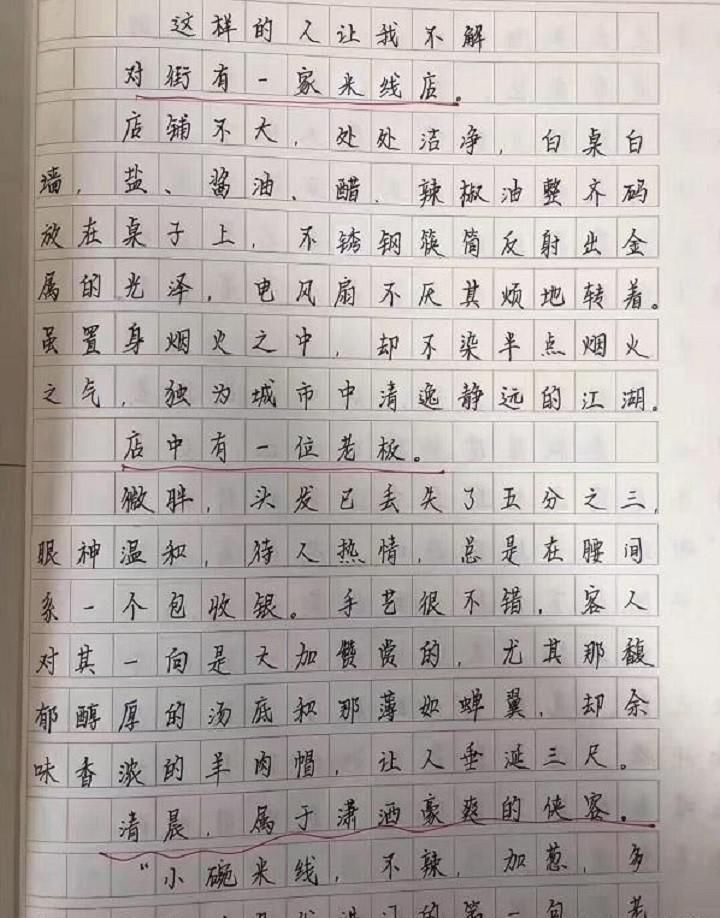 这样的人让我不解
对街有一家米线店。
店铺不大，处处洁净，白桌白
墙，盐、酱油、醋、辣椒油整齐码
放在桌子上，不锈钢筷筒反射出金
属的光泽，电风扇不厌其烦地转着。
虽置身烟火之中，却不染半点烟火
之气，独为城市中清逸静远的江湖。
店中有一位老板。
微胖，头发已丢失了五分之三，
眼神温和，待人热情，总是在腰间
系一个包收银。手艺很不错，客人
对其一向是大加赞赏的，尤其那馥
郁醇厚的汤底和那薄如蝉翼，却余
味香浓的羊肉帽，让人垂涎三尺。
清晨，属于潇洒豪爽的侠客。
“小碗米线，不辣，加葱，多
进门的第一句，老